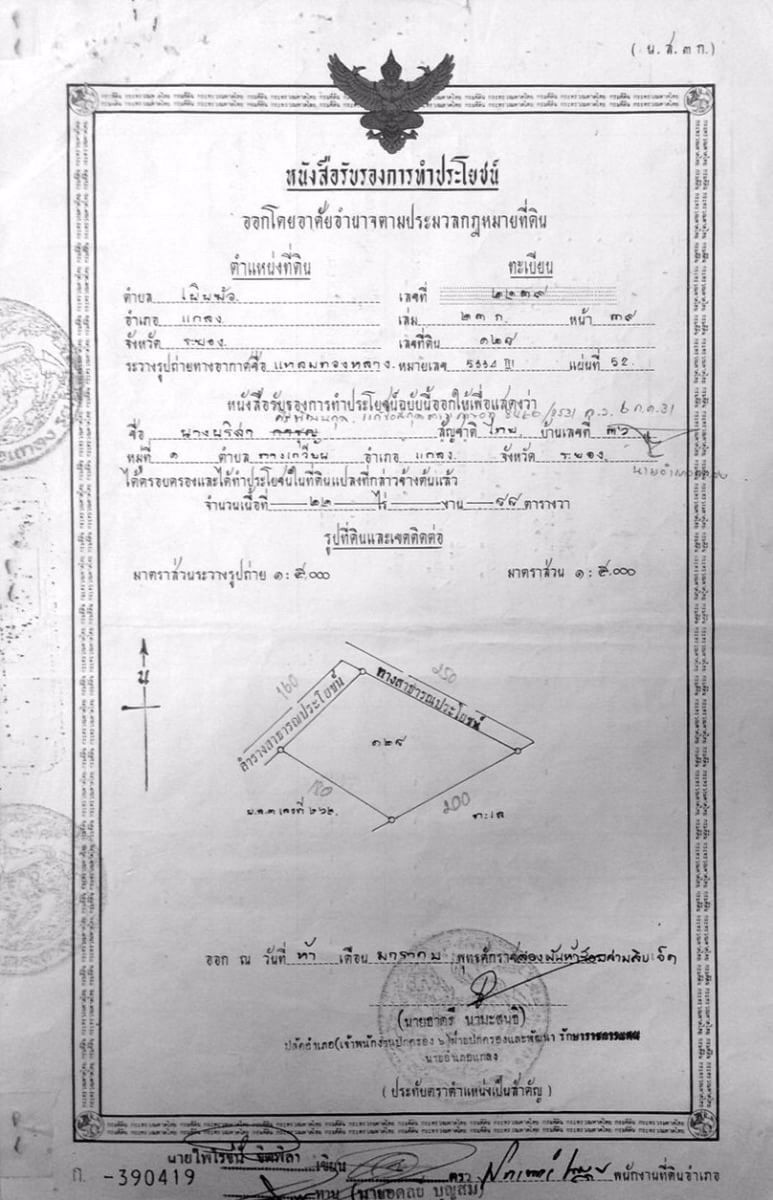 ( น.ส.๓ ก.)
หนังสือรับรองการทำประโยชน์
ออกโดยอาศัยอำนาจตามประมวลกฎหมายที่ดิน
ตำแหน่งที่ดิน ทะเบียน
ตำบล เนินฆ้อ เลขที่ ๒๒๓๙
อำเภอ แกลง เล่ม ๒๓ ก. หน้า ๓๙
จังหวัด ระยอง เลขที่ดิน ๑๒๙
ระวางรูปถ่ายทางอากาศชื่อ แหลมทองหลาง หมายเลข 5334 III แผ่นที่ 52
หนังสือรับรองการทำประโยชน์ฉบับนี้ออกให้เพื่อแสดงว่า
ชื่อ นาง สัญชาติ ไทย บ้านเลขที่
หมู่ที่ ๑ ตำบล ทางเกวียน อำเภอ แกลง จังหวัด ระยอง
ได้ครอบครองและได้ทำประโยชน์ในที่ดินแปลงที่กล่าวข้างต้นแล้ว
จำนวนเนื้อที่ ๒๒ ไร่ - งาน ๙๙ ตารางวา
รูปที่ดินและเขตติดต่อ
มาตราส่วนระวางรูปถ่าย ๑ : ๕,๐๐๐ มาตราส่วน ๑ : ๕,๐๐๐
น
160
ลำรางสาธารณประโยชน์
250
ทางสาธารณประโยชน์
๑๒๙
180
น.ส.๓ เลขที่ ๒๖๒
200
ทะเล
ออก ณ วันที่ ห้า เดือน มกราคม พุทธศักราช สองพันห้าร้อยสามสิบเจ็ด
(นายชาตรี นามะสนธิ)
ปลัดอำเภอ(เจ้าพนักงานปกครอง ๖)ฝ่ายปกครองและพัฒนา รักษาราชการแทน
นายอำเภอแกลง
( ประทับตราตำแหน่งเป็นสำคัญ )
นายไพโรจน์ เขียน
ก. -390419 ตรวจ พนักงานที่ดินอำเภอ
ทาน